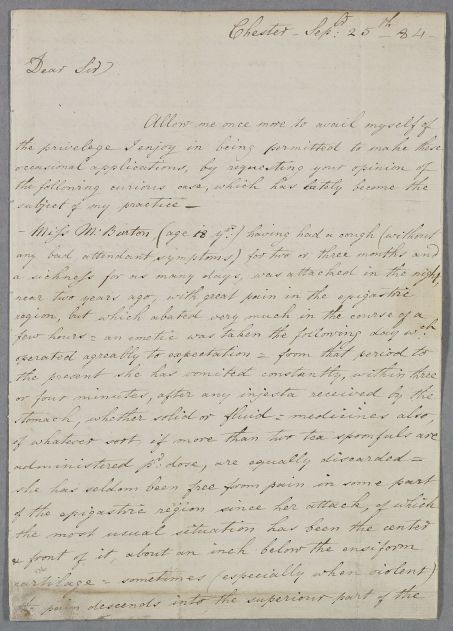 Chester - Sepr: 25th - 84 -
Dear Sir
Allow me once more to avail myself of
the privelege I enjoy in being permitted to make these
occasional applications, by requesting your opinion of
the following curious case, which has lately become the
subject of my practice -
- Miss McBurton (age 18 yrs.) having had a cough (without
any bad attendant symptoms) for two or three months and
a sickness for as many days, was attacked in the night,
near two years ago, with great pain in the epigastric
region, but which abated very much in the course of a
few hours = an emetic was taken the following day wch
operated agreably to expectation = from that period to
the present she has vomited constantly, within three
or four minuites, after any injesta received by the
stomach, whether solid or fluid = medicines also,
of whatever sort, if more than two tea spoonfuls are
administered pr. dose, are equally discarded =
she has seldom been free from pain in some part
of the epigastric region since her attack, of which
the most usual situation has been the center
& front of it, about an inch below the ensiform
cartilage = sometimes (especially when violent)
the pain descends into the superiour part of the